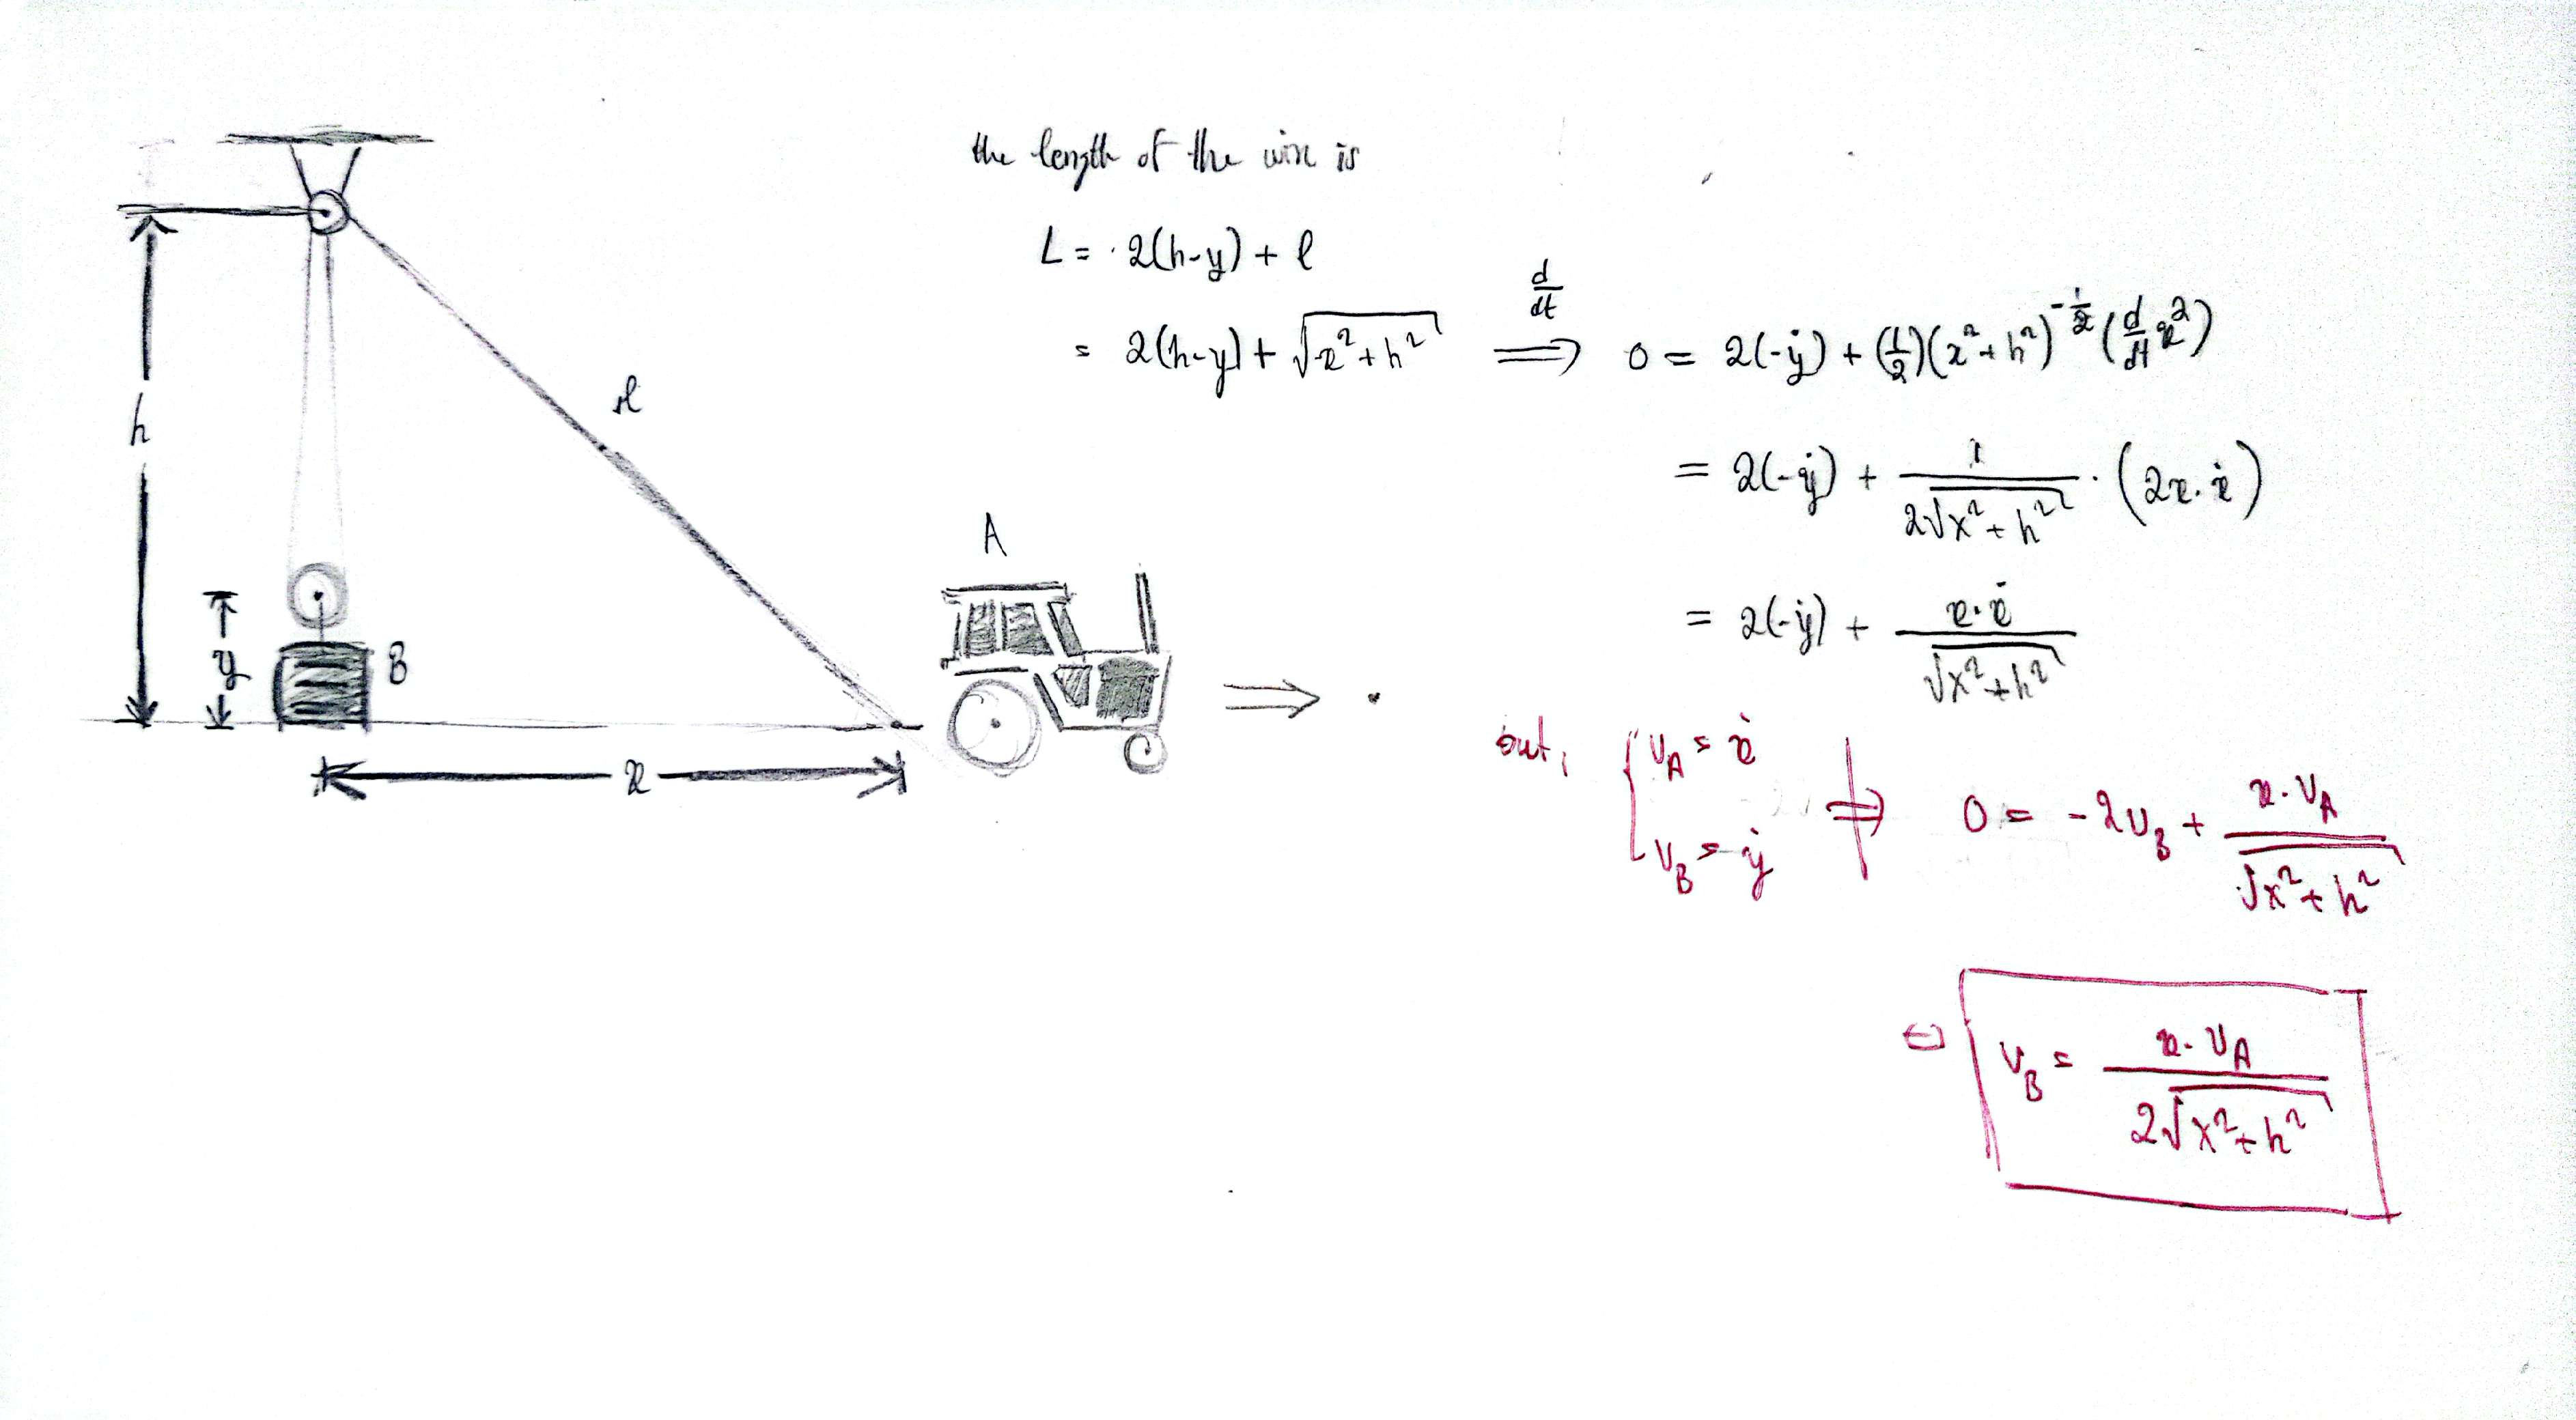 the length of the wire is
L = 2(h-y) + l
= 2(h-y) + √(x²+h²) d/dt ⟹ 0 = 2(-ẏ) + (1/2)(x²+h²)^(-1/2) (d/dt x²)
= 2(-ẏ) + 1/(2√(x²+h²)) · (2x·ẋ)
= 2(-ẏ) + x·ẋ/√(x²+h²)
but, { v_A = ẋ
v_B = ẏ ⟹ 0 = -2v_B + x·v_A/√(x²+h²)
⇔ v_B = x·v_A/(2√(x²+h²))
h
l
A
y
B
x